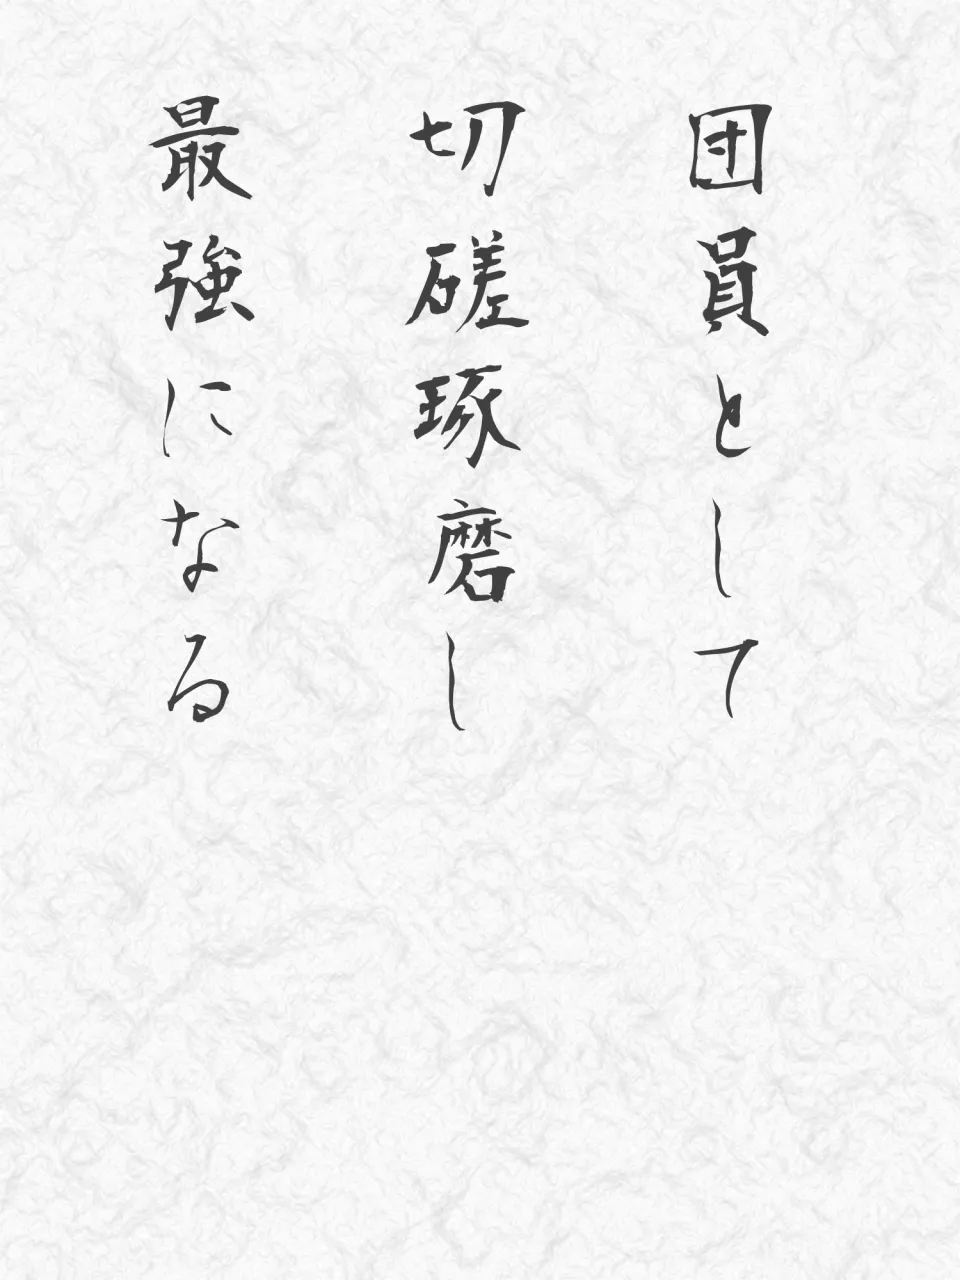 団員として
切磋琢磨し
最強になる